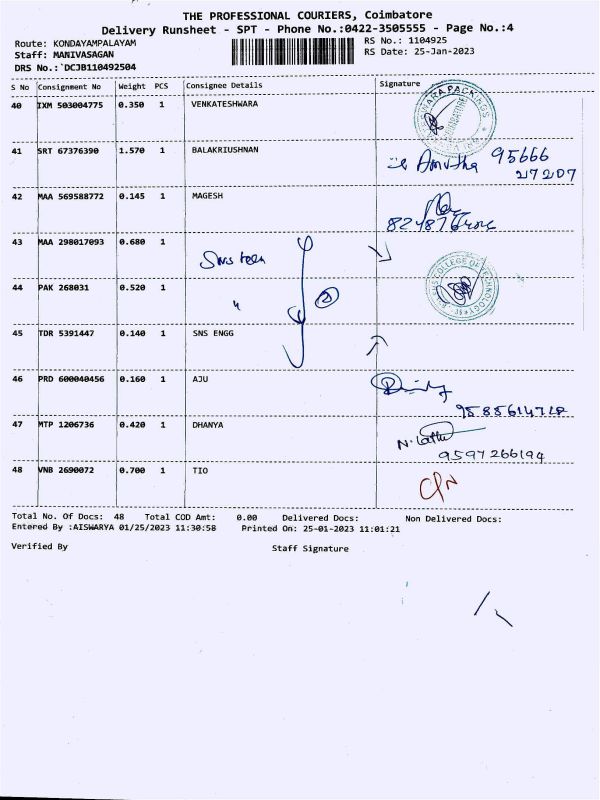 THE PROFESSIONAL COURIERS, Coimbatore
Delivery Runsheet - SPT - Phone No.:0422-3505555 - Page No.:4
Route: KONDAYAMPALAYAM RS No.: 1104925
Staff: MANIVASAGAN RS Date: 25-Jan-2023
DRS No.:`DCJB110492504
S No Consignment No Weight PCS Consignee Details Signature
40 IXM 503004775 0.350 1 VENKATESHWARA
41 SRT 67376390 1.570 1 BALAKRIUSHNAN
Amutha 95666
27207
42 MAA 569588772 0.145 1 MAGESH
43 MAA 298017093 0.680 1
44 PAK 268031 0.520 1 "
COLLEGE OF TECHNOLOGY
45 TDR 5391447 0.140 1 SNS ENGG
46 PRD 600040456 0.160 1 AJU
9585614718
47 MTP 1206736 0.420 1 DHANYA
9597266194
48 VNB 2690072 0.700 1 TIO
Total No. Of Docs: 48 Total COD Amt: 0.00 Delivered Docs: Non Delivered Docs:
Entered By :AISWARYA 01/25/2023 11:30:58 Printed On: 25-01-2023 11:01:21
Verified By Staff Signature